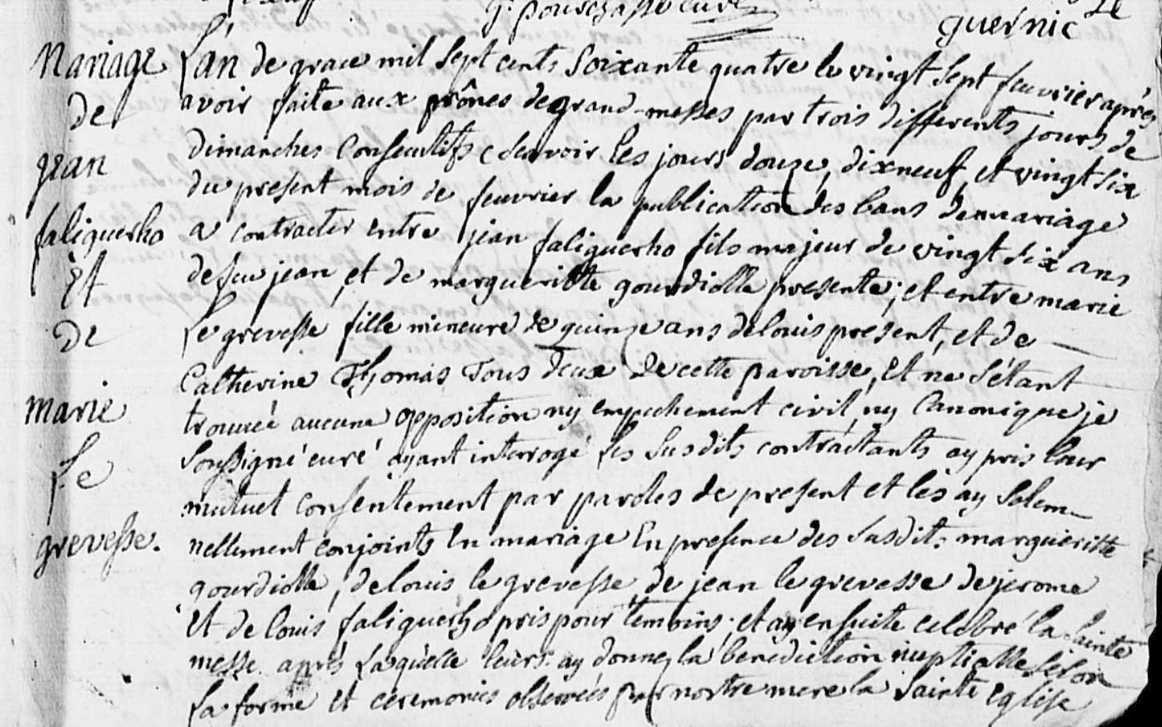 g: pourchasse curé
Le
guernic
Mariage
de
jean
faliguerho
Et
de
marie
Le
grevesse.
L'an de grace mil sept cents soixante quatre le vingt sept feuvrier après
avoir faite aux prônes de grand-messes par trois differents jours de
dimanches Consecutifs scavoir les jours douze, dixneuf, et vingt six
du present mois de feuvrier la publication des bans de mariage
a contracter entre jean faliguerho fils majeur de vingt six ans
de feu jean, et de margueritte gourdiolle presente; et entre marie
Le grevesse fille mineure de quinze ans de louis present, et de
Catherine Thomas Tous deux de cette paroisse, Et ne s'étant
trouvée aucune opposition ny empechement civil, ny Canonique je
soussigné curé ayant interrogé les susdits contractants ay pris leur
mutuel consentement par paroles de present et les ay solem-
nellement conjoints En mariage En presence des susdits: margueritte
gourdiolle, de louis le grevesse, de jean le grevesse de jerome
Et de louis faliguerho pris pour temoins; et ay ensuite celebre la sainte
messe. après Laquelle leurs ay donnez la benediction nuptialle selon
La forme Et ceremonies observées par nostre mere la sainte Eglise